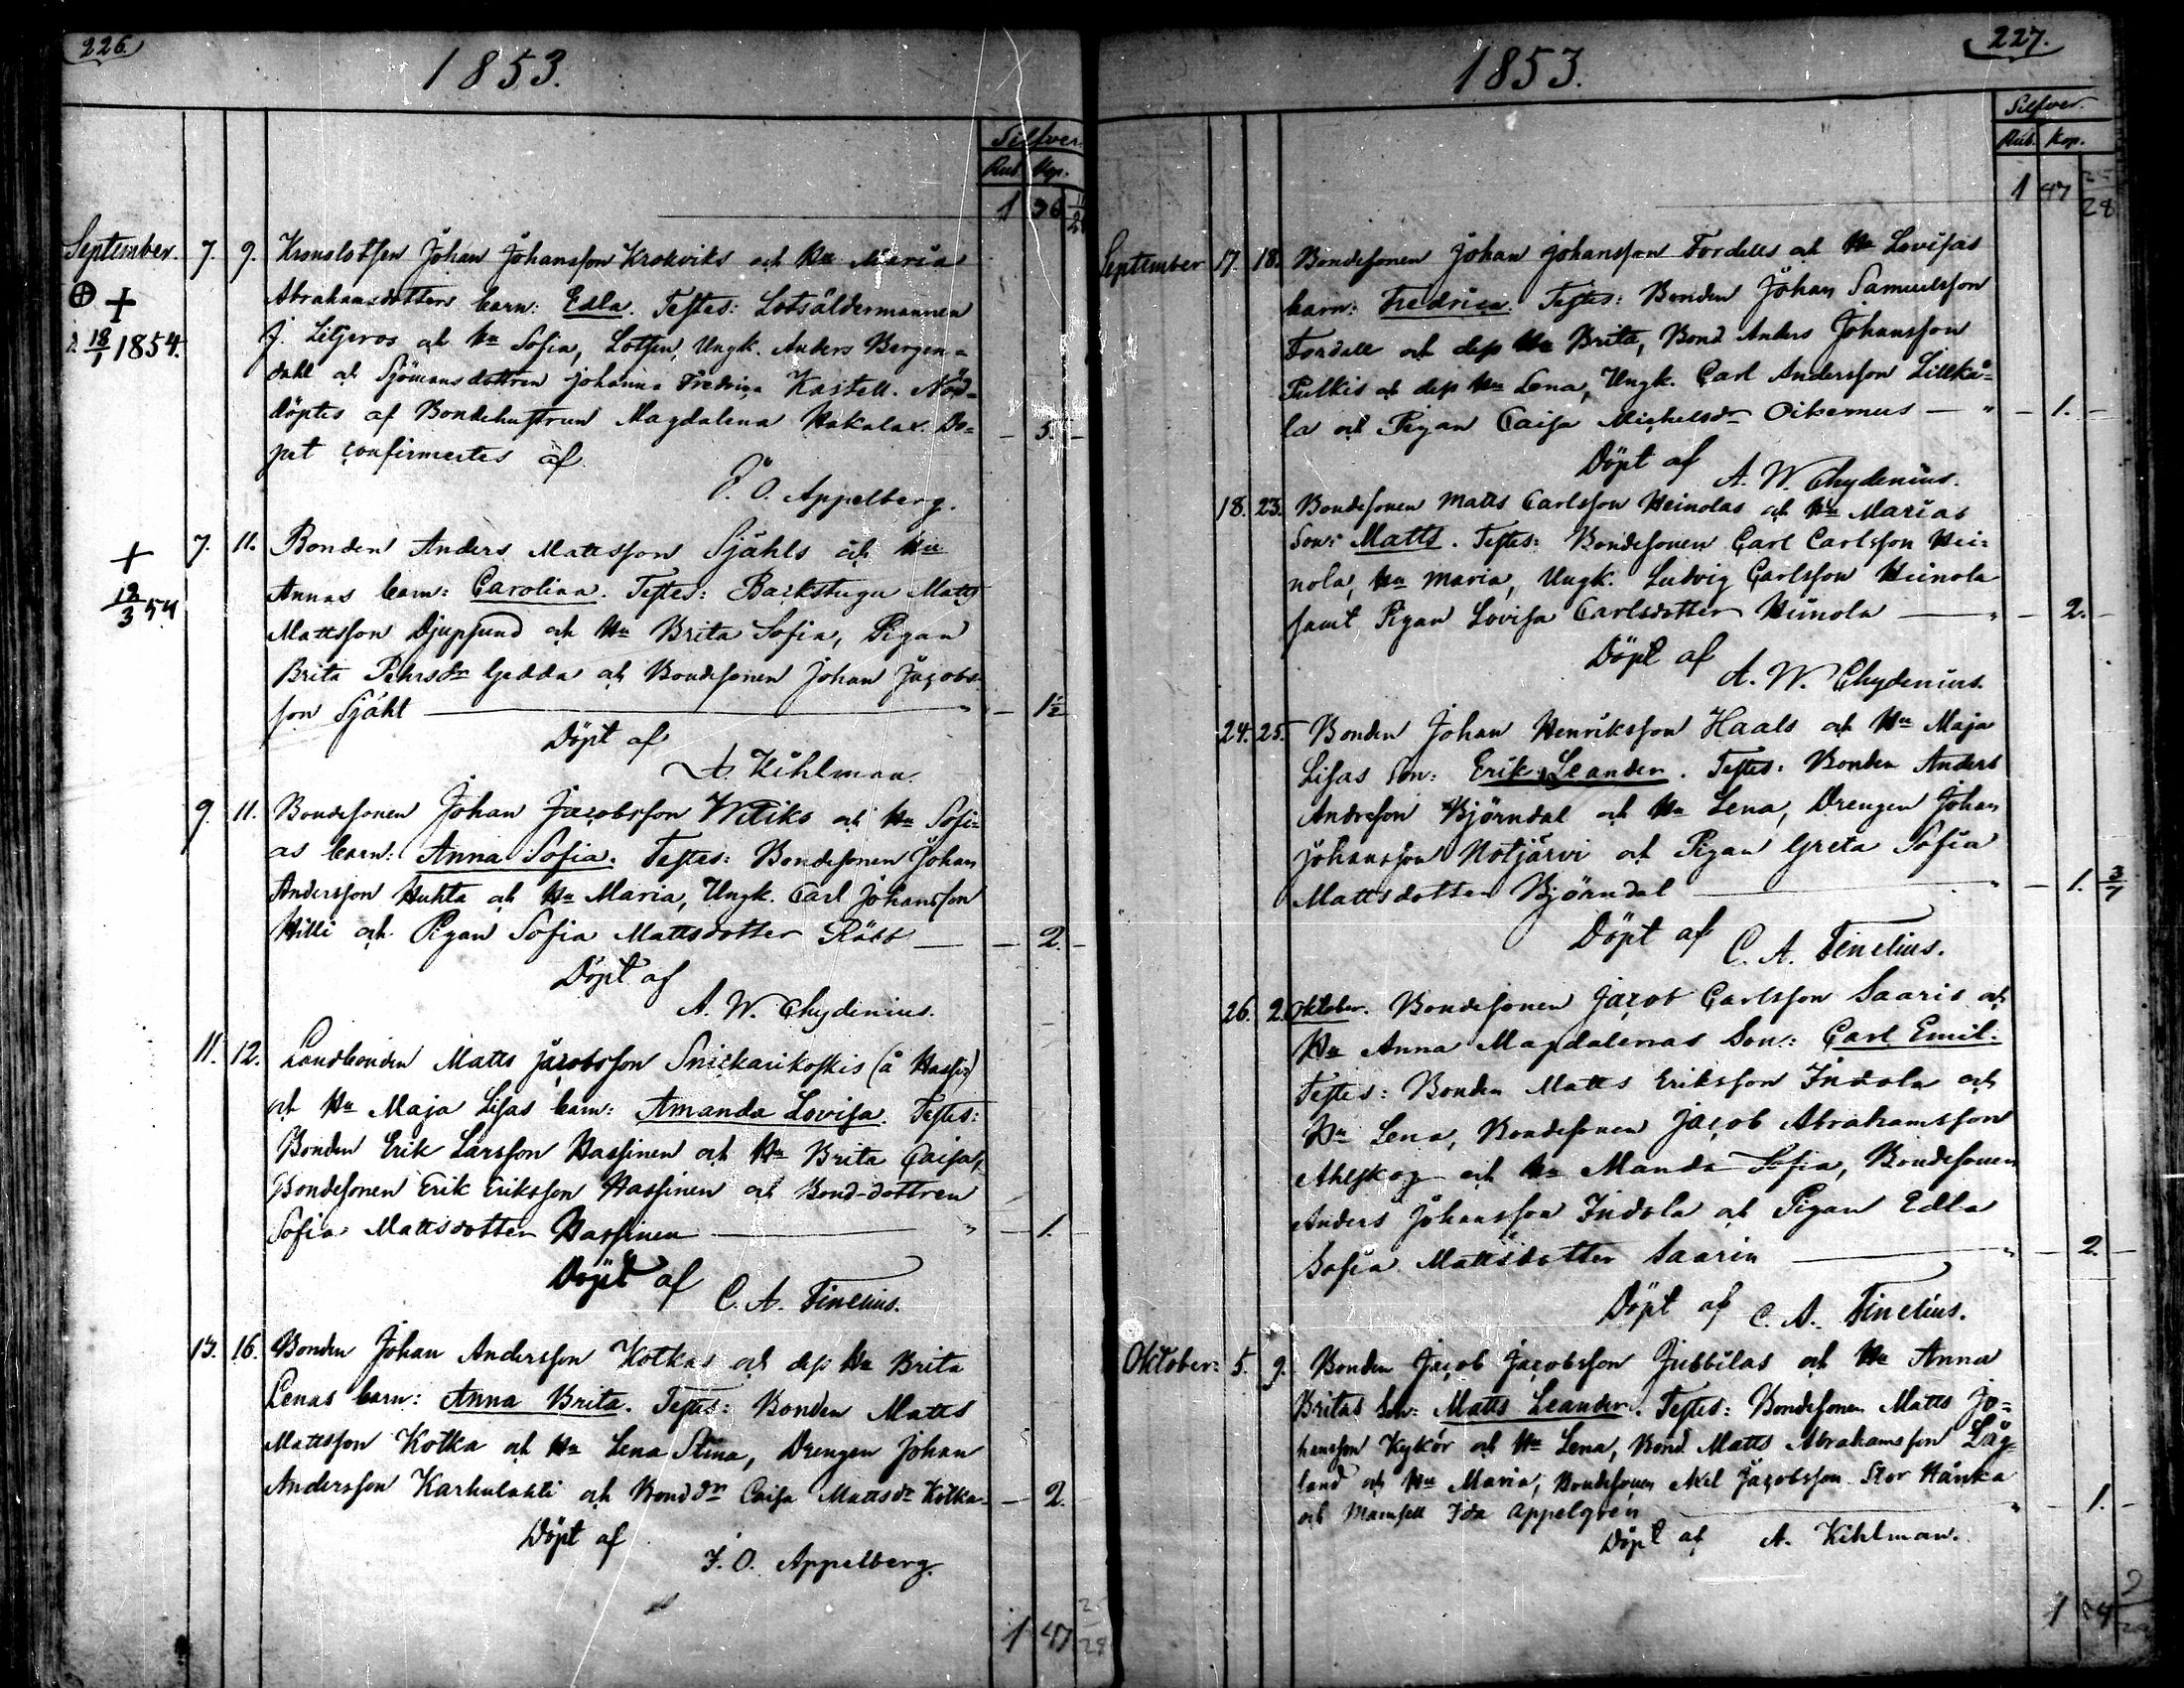 226.
1853.
Silfver.
Rub. Kop.
1 36 11/28
September. 7. 9. Kronolotsen Johan Johansson Krokviks och Hu Maria
Abrahamsdotters barn: Edla. Testes: Lotsåldermannen
J. Liljeros och Hu Sofia, Lotsen, Ungk. Anders Bergen=
dahl och Sjömansdottren Johanna Fredrica Kastell. Nöd=
döptes af Bondehustrun Magdalena Hakalax. Do= — 5. —
pet confirmertes af
J. O. Appelberg.
+
d. 18/7 1854.
7. 11. Bonden Anders Mattsson Sjåhls och Hu
Annas barn: Carolina. Testes: Backstugu Matts
Mattsson Djupsund och Hu Brita Sofia, Pigan
Brita Pehrsdr Gedda och Bondesonen Johan Jacobs=
son Sjåhl — " — 1½
Döpt af
A. Kihlman.
+
12/3 54
9. 11. Bondesonen Johan Jacobsson Witiks och Hu Sofi=
as barn: Anna Sofia. Testes: Bondesonen Johan
Andersson Huhta och Hu Maria, Ungk. Carl Johansson
Hilli och Pigan Sofia Mattsdotter Räbb — — 2. —
Döpt af
A. W. Chydenius.
11. 12. Landbonden Matts Jacobsson Snickarikoskis (å Hassi.)
och Hu Maja Lisas barn: Amanda Lovisa. Testes:
Bonden Erik Larsson Hassinen och Hu Brita Caisa,
Bondesonen Erik Eriksson Hassinen och Bond-dottren
Sofia Mattsdotter Hassinen — " — 1. —
Döpt af
C. A. Finelius.
13. 16. Bonden Johan Andersson Kotkas och dess Hu Brita
Lenas barn: Anna Brita. Testes: Bonden Matts
Mattsson Kotka och Hu Lena Stina, Drengen Johan
Andersson Karhulahti och Bonddr Caisa Mattsdr Kotka — 2. —
Döpt af
J. O. Appelberg.
1 47 25/28
227.
1853.
Silfver.
Rub. Kop.
1 47 25/28
September 17. 18. Bondesonen Johan Johansson Fordells och Hu Lovisas
barn: Fredrica. Testes: Bonden Johan Samuelsson
Fordell och dess Hu Brita, Bond Anders Johansson
Pulkis och dess Hu Lena, Ungk. Carl Andersson Lillkå=
la och Pigan Caisa Michelsdr Oikemus — " — 1. —
Döpt af
A. W. Chydenius.
18. 23. Bondesonen Matts Carlsson Heinolas och Hu Marias
Son: Matts. Testes: Bondesonen Carl Carlsson Hei=
nola, Hu Maria, Ungk. Ludvig Carlsson Heinola
samt Pigan Lovisa Carlsdotter Heinola — " — 2. —
Döpt af
A. W. Chydenius.
24. 25. Bonden Johan Henriksson Haals och Hu Maja
Lisas Son: Erik Leander. Testes: Bonden Anders
Andersson Björndal och Hu Lena, Drengen Johan
Johansson Notjärvi och Pigan Greta Sofia
Mattsdotter Björndal — " — 1. 3/7
Döpt af
C. A. Finelius.
26. 2. Oktober. Bondesonen Jacob Carlsson Saaris och
Hu Anna Magdalenas Son: Carl Emil.
Testes: Bonden Matts Eriksson Indola och
Hu Lena, Bondesonen Jacob Abrahamsson
Ahlskog och Hu Manda Sofia, Bondesonen
Anders Johansson Indola och Pigan Edla
Sofia Mattsdotter Saarin — " — 2. —
Döpt af C. A. Finelius.
Oktober: 5. 9. Bonden Jacob Jacobsson Jubbilas och Hu Anna
Britas Son: Matts Leander. Testes: Bondesonen Matts Jo=
hansson Kykör och Hu Lena, Bond. Matts Abrahamsson Låg=
land och Hu Maria, Bondesonen Axel Jacobsson Stor Hänka
och Mamsell Ida Appelgren — " — 1. —
Döpt af A. Kihlman.
1